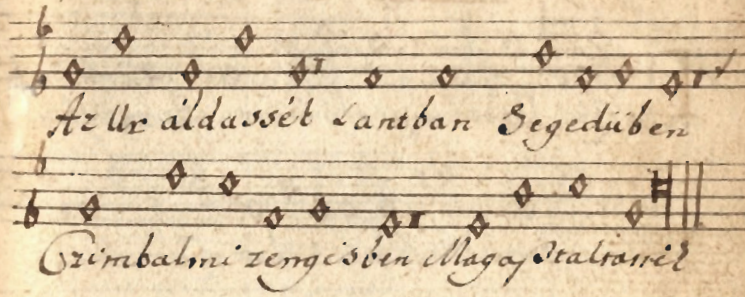 Az Ur áldassék Lantban Segedüben
Czimbalmi zengésben Magasztaltassék